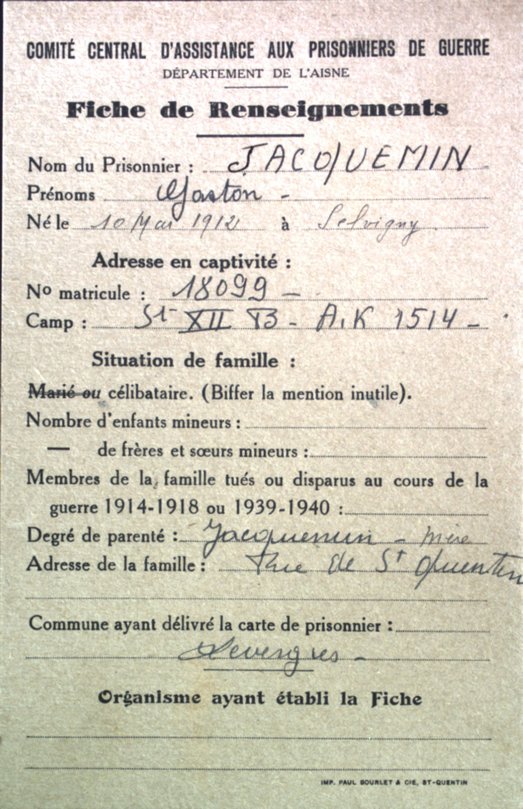 COMITÉ CENTRAL D'ASSISTANCE AUX PRISONNIERS DE GUERRE
DÉPARTEMENT DE L'AISNE
Fiche de Renseignements
Nom du Prisonnier : JACQUEMIN
Prénoms Gaston -
Né le 10 Mai 1912 à Selvigny
Adresse en captivité :
No matricule : 18099 -
Camp : St XII B - A.K 1514 -
Situation de famille :
Marié ou célibataire. (Biffer la mention inutile).
Nombre d'enfants mineurs :
— de frères et sœurs mineurs :
Membres de la famille tués ou disparus au cours de la
guerre 1914-1918 ou 1939-1940 :
Degré de parenté : Jacquemin - mère
Adresse de la famille : Rue de St Quentin
Commune ayant délivré la carte de prisonnier :
Levergies -
Organisme ayant établi la Fiche
IMP. PAUL BOURLET & CIE, ST-QUENTIN